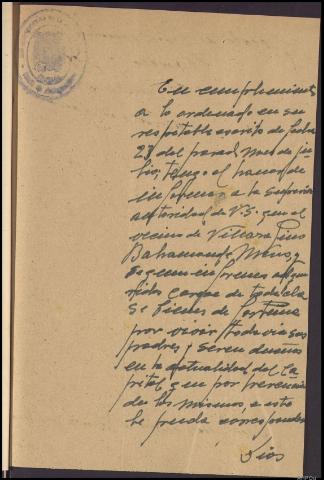 En cumplimiento
a lo ordenado en su
respetable escrito de fecha
28 del pasado mes de ju-
lio, tengo el honor de
informar a la superior
autoridad de V.S. que el
vecino de Villara Pino
Bahamonde Mons, y
segun informes adqui-
ridos carece de toda cla
se bienes de fortuna
por vivir todavia sus
padres y seren dueños
en la actualidad del Ca-
pital que por herencia
de los mismos a este
le pueda corresponder
Dios